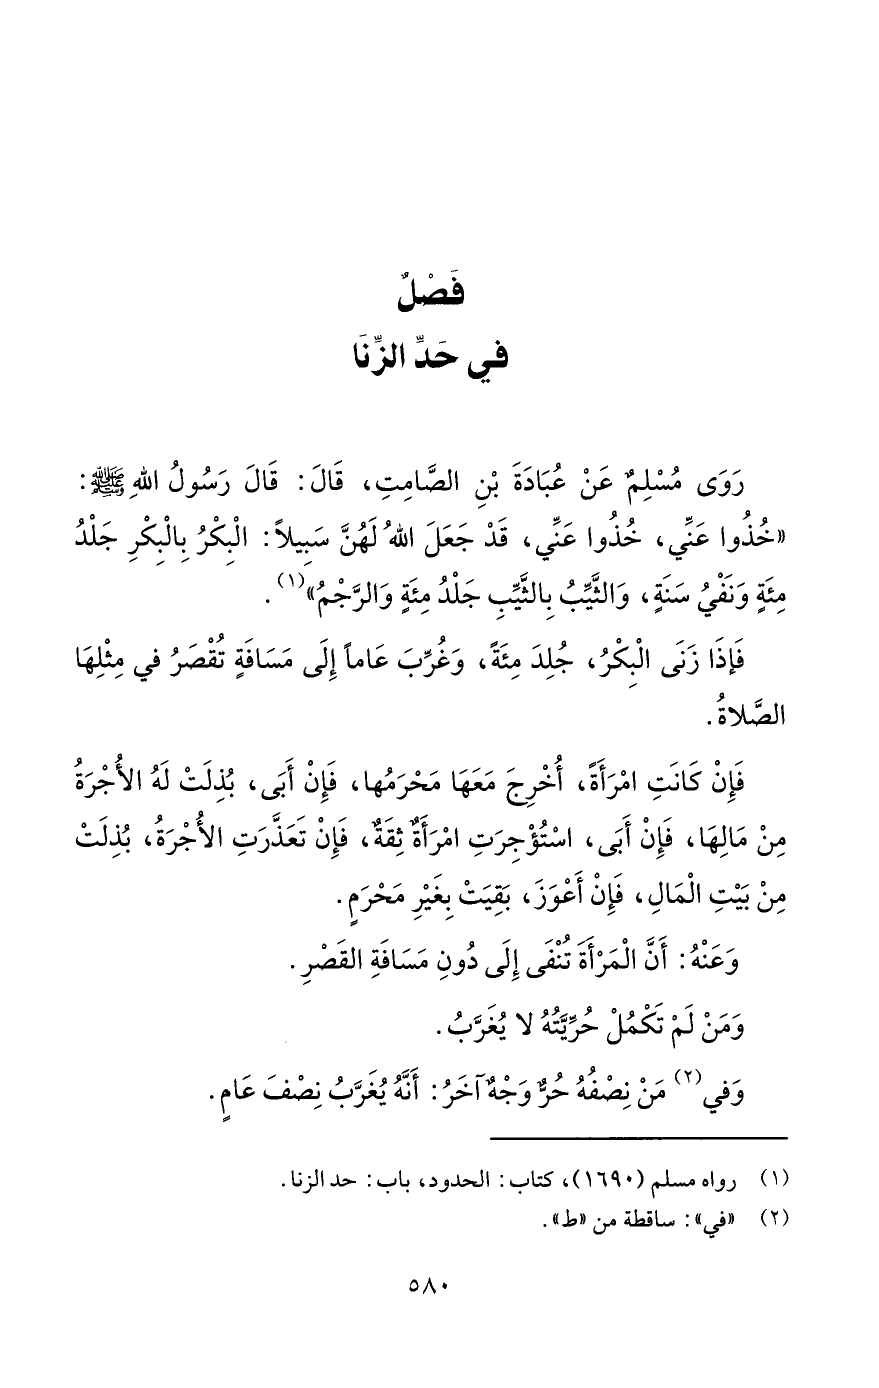 فَصْلٌ
في حَدِّ الزِّنَا
رَوَى مُسْلِمٌ عَنْ عُبَادَةَ بْنِ الصَّامِتِ، قَالَ: قَالَ رَسُولُ اللهِ ﷺ:
«خُذُوا عَنِّي، خُذُوا عَنِّي، قَدْ جَعَلَ اللهُ لَهُنَّ سَبِيلاً: الْبِكْرُ بِالْبِكْرِ جَلْدُ
مِئَةٍ وَنَفْيُ سَنَةٍ، وَالثَّيِّبُ بِالثَّيِّبِ جَلْدُ مِئَةٍ وَالرَّجْمُ»(١).
فَإِذَا زَنَى الْبِكْرُ، جُلِدَ مِئَةً، وَغُرِّبَ عَاماً إِلَى مَسَافَةٍ تُقْصَرُ في مِثْلِهَا
الصَّلاةُ.
فَإِنْ كَانَتِ امْرَأَةً، أُخْرِجَ مَعَهَا مَحْرَمُها، فَإِنْ أَبَى، بُذِلَتْ لَهُ الأُجْرَةُ
مِنْ مَالِهَا، فَإِنْ أَبَى، اسْتُؤْجِرَتِ امْرَأَةٌ ثِقَةٌ، فَإِنْ تَعَذَّرَتِ الأُجْرَةُ، بُذِلَتْ
مِنْ بَيْتِ الْمَالِ، فَإِنْ أَعْوَزَ، بَقِيَتْ بِغَيْرِ مَحْرَمٍ.
وَعَنْهُ: أَنَّ الْمَرْأَةَ تُنْفَى إِلَى دُونِ مَسَافَةِ القَصْرِ.
وَمَنْ لَمْ تَكْمُلْ حُرِّيَّتُهُ لا يُغَرَّبُ.
وَفي(٢) مَنْ نِصْفُهُ حُرٌّ وَجْهٌ آخَرُ: أَنَّهُ يُغَرَّبُ نِصْفَ عَامٍ.
(١) رواه مسلم (١٦٩٠)، كتاب: الحدود، باب: حد الزنا.
(٢) «في»: ساقطة من «ط».
٥٨٠